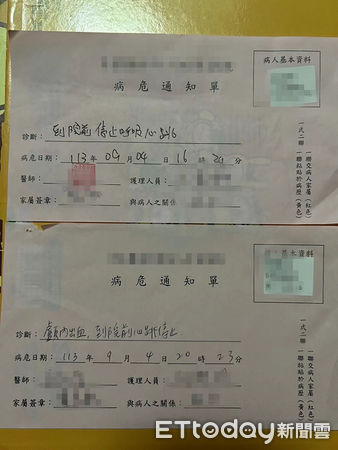 病危通知單
病人基本資料
診斷：到院前停止呼吸心跳
病危日期：113年09月04日16時20分
醫師：
護理人員：
家屬簽章：
與病人之關係：
一式二聯
一聯交病人家屬（紅色）
一聯黏貼於病歷（黃色）
病危通知單
基本資料
診斷：顱內出血,到院前心跳停止
病危日期：113年9月4日20時23分
醫師：
護理人員：
家屬簽章：
與病人之關係：
一式二聯
一聯交病人家屬（紅色）
一聯黏貼於病歷（黃色）
ETtoday新聞雲